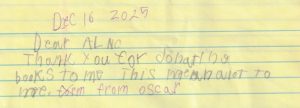 Dec 16 2025
Dear ALNC
Thank You for donating
books to me This mean alot to
me. from oscar